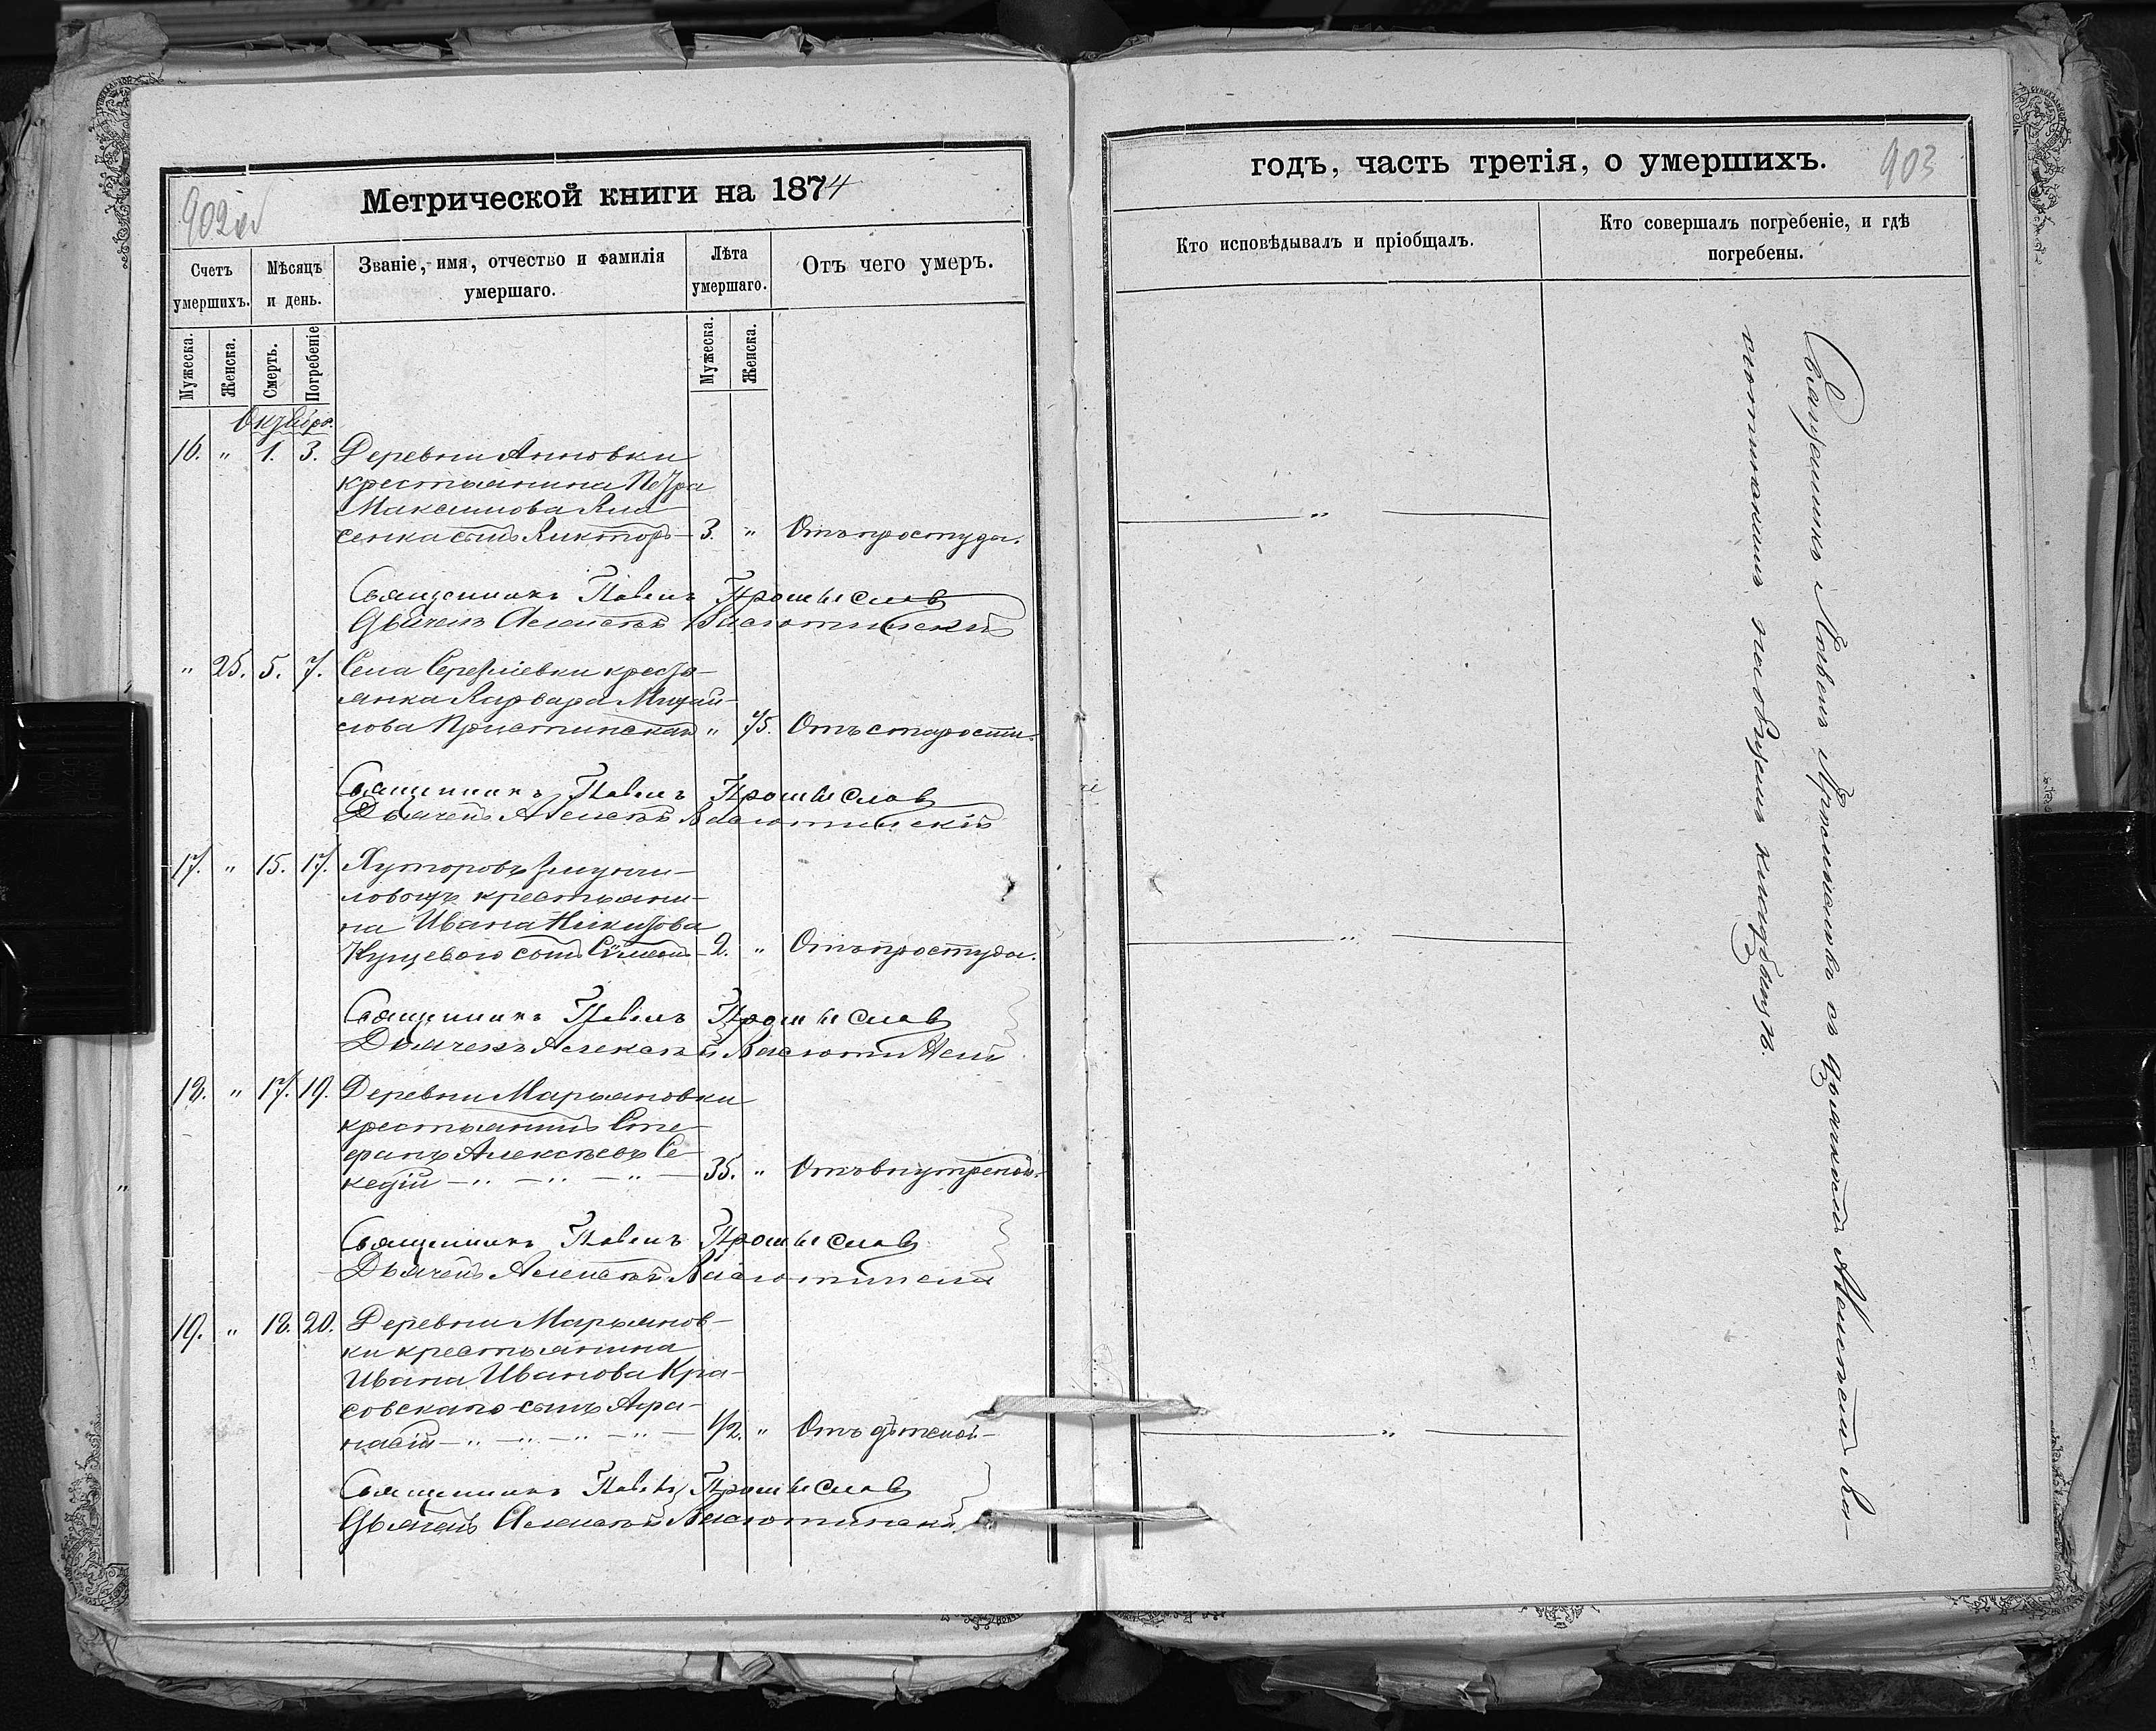 902 об
Метрической книги на 1874
Счетъ умершихъ.
Мѣсяцъ и день.
Званіе, имя, отчество и фамилія умершаго.
Лѣта умершаго.
Отъ чего умеръ.
Мужеска.
Женска.
Смерть.
Погребеніе
Мужеска.
Женска.
Октябрь.
16. " 1. 3. Деревни Анновки
крестьянина Петра
Максимова
сенка сынъ Викторъ 3. " Отъ простуды.
Священникъ Павелъ Промысловъ
Дьячекъ Алексѣй Васютинскій
" 25. 5. 7. Села Сергѣевки кресть-
янка Варвара Михай-
лова " 75. Отъ старости.
Священникъ Павелъ Промысловъ
Дьячекъ Алексѣй Васютинскій
17. " 15. 17. Хуторовъ
крестьяни-
на Ивана Никитова
Куцеваго сынъ Сѵмеонъ 2. " Отъ простуды.
Священникъ Павелъ Промысловъ
Дьячекъ Алексѣй Васютинскій
18. " 17. 19. Деревни Марьяновки
крестьянинъ Сте-
фанъ Алексѣевъ Се-
35. " Отъ внутреной.
Священникъ Павелъ Промысловъ
Дьячекъ Алексѣй Васютинскій
19. " 18. 20. Деревни Марьянов-
ки крестьянина
Ивана Иванова Кра-
совскаго сынъ Афа-
насій 1/2. " Отъ дѣтской
Священникъ Павелъ Промысловъ
Дьячекъ Алексѣй Васютинскій
годъ, часть третія, о умершихъ.
903
Кто исповѣдывалъ и пріобщалъ.
Кто совершалъ погребеніе, и гдѣ погребены.
Священникъ Павелъ Промысловъ съ дьячкомъ Алексѣемъ Ва-
сютинскимъ на общемъ кладбищѣ.